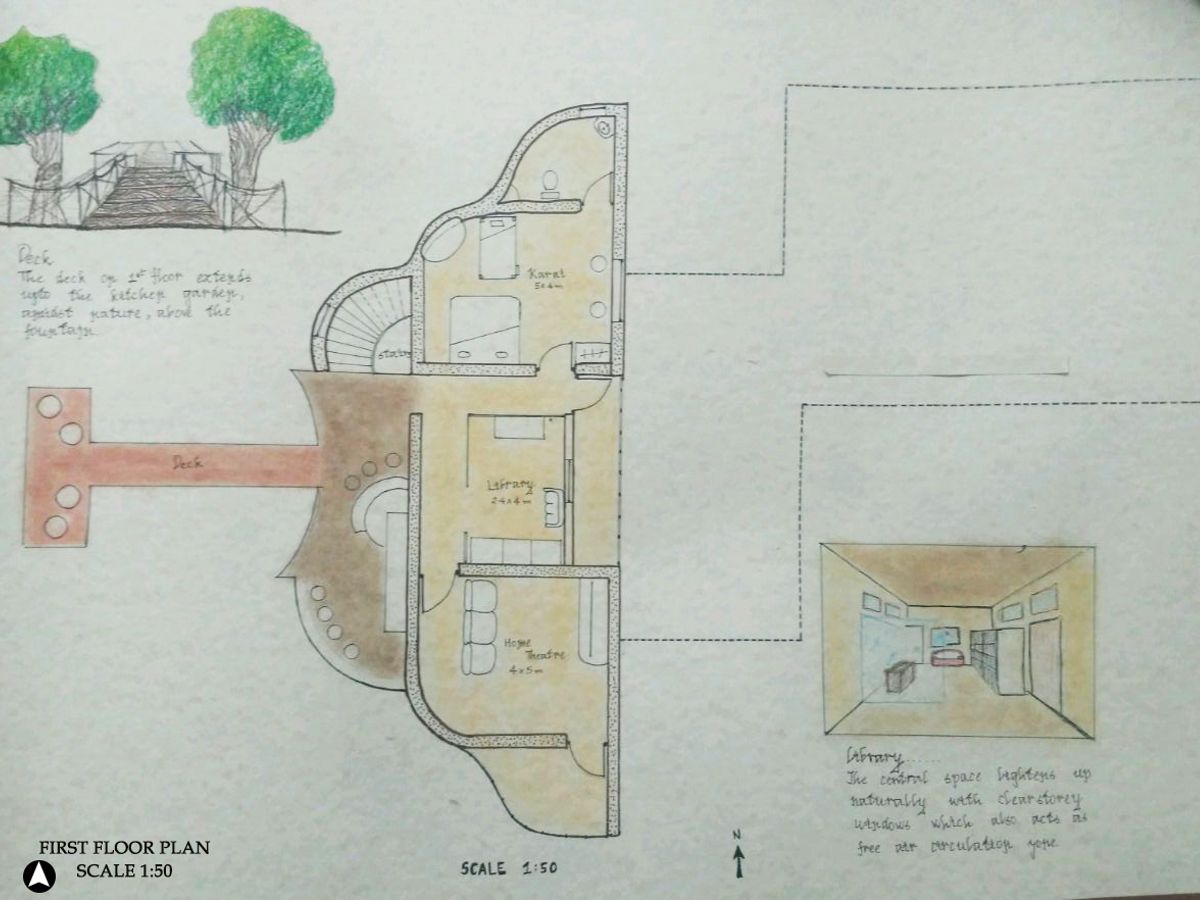 Deck
The deck on 1st floor extends
upto the kitchen garden,
amidst nature, above the
fountain.
Karat
5x4m
stairs
Deck
Library
2.4x4m
Home
Theatre
4x5m
Library......
The central space lightens up
naturally with clearstorey
windows which also acts as
free air circulation
FIRST FLOOR PLAN
SCALE 1:50
SCALE 1:50
N